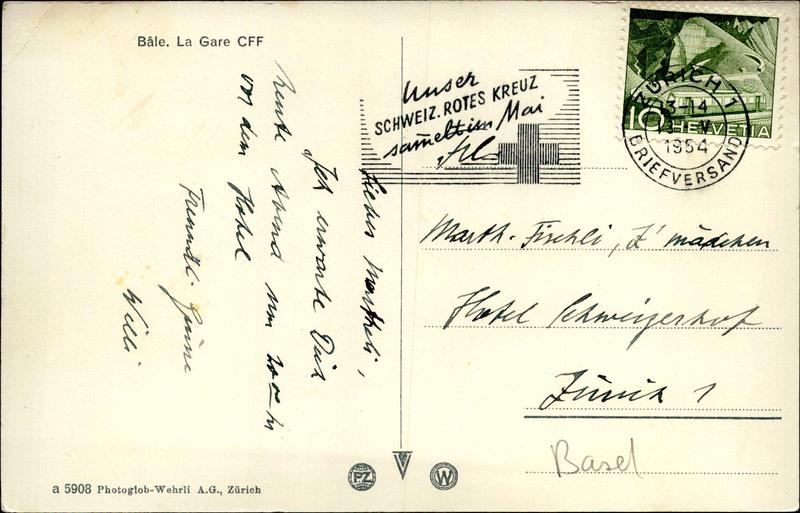 Bâle. La Gare CFF
Liebes Martheli,
Ich erwarte Dich
heute Abend um 20 00 h
vor dem Hotel
Freundl. Grüsse
Willi
a 5908 Photoglob-Wehrli A.G., Zürich
PZ
W
Unser
SCHWEIZ. ROTES KREUZ
sammelt im Mai
10 HELVETIA
ZÜRICH 1
13-14
V
1954
BRIEFVERSAND
Marth. Fischli, Z'mädchen
Hotel Schweizerhof
Zürich 1
Basel